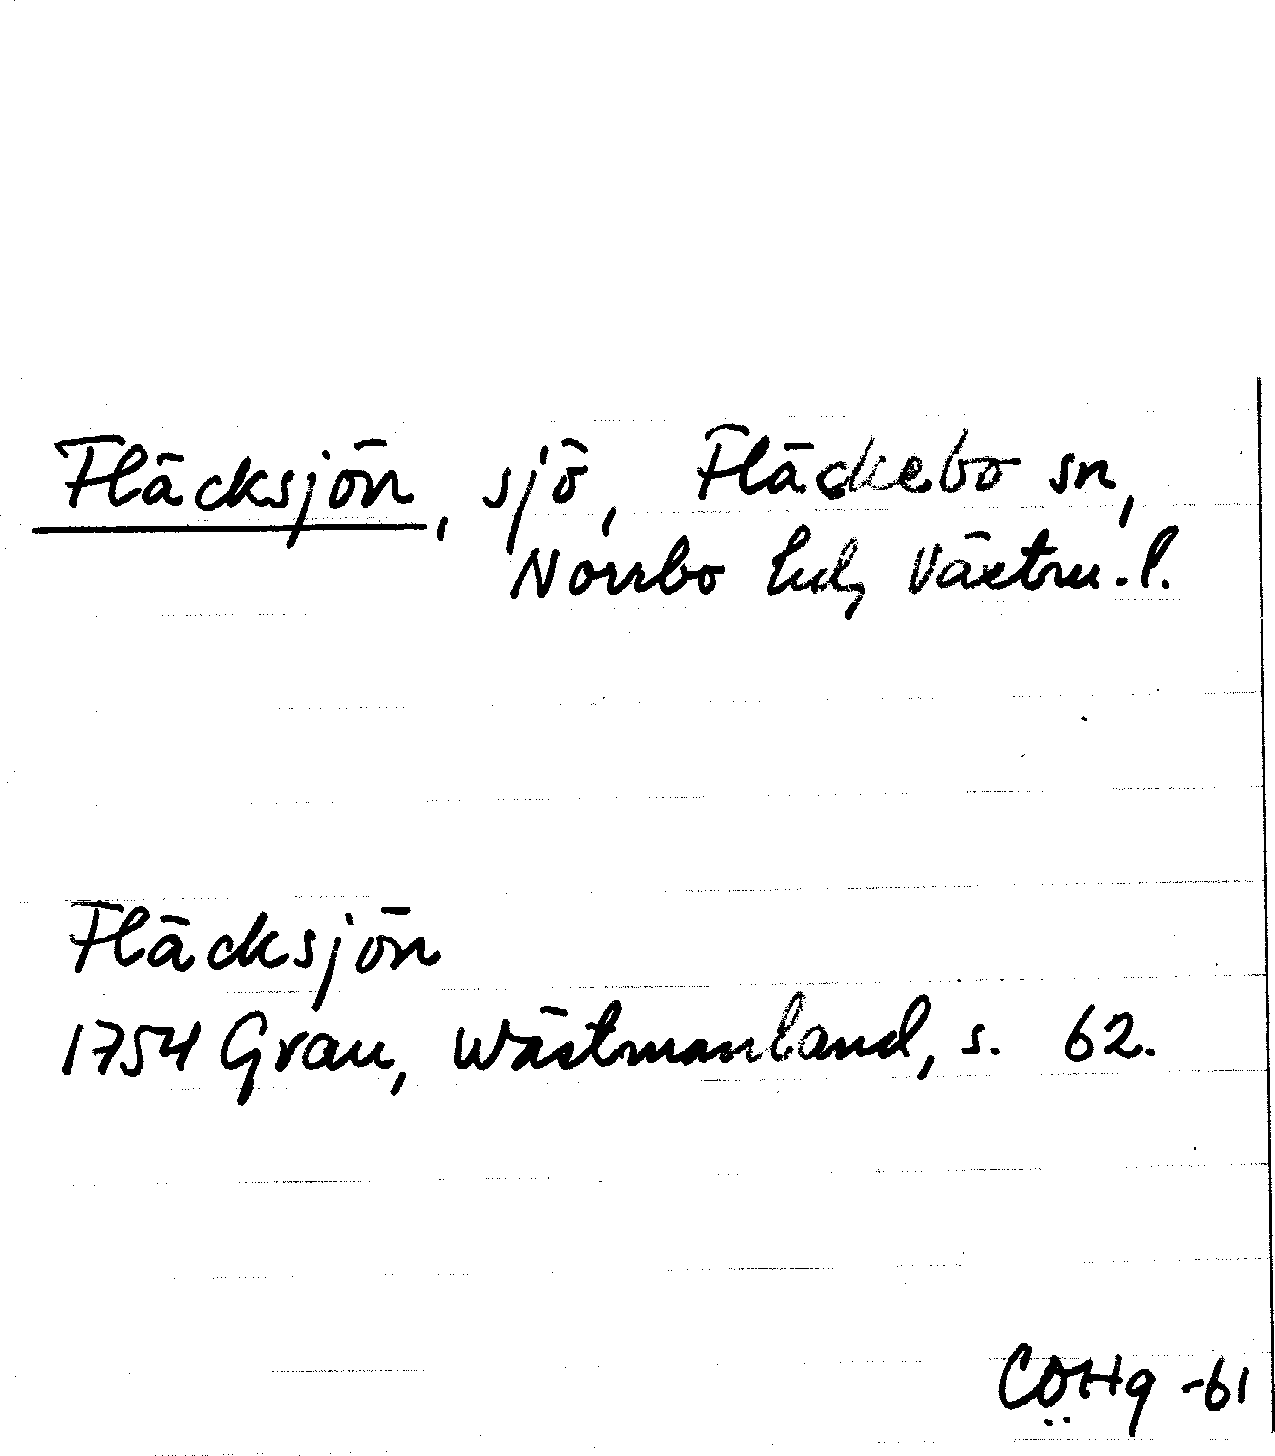 Fläcksjön, sjö, Fläckebo sn,
Norrbo hd, Västm. l.
Fläcksjön
1754 Grau, Wästmanland, s. 62.
CÖHg -61